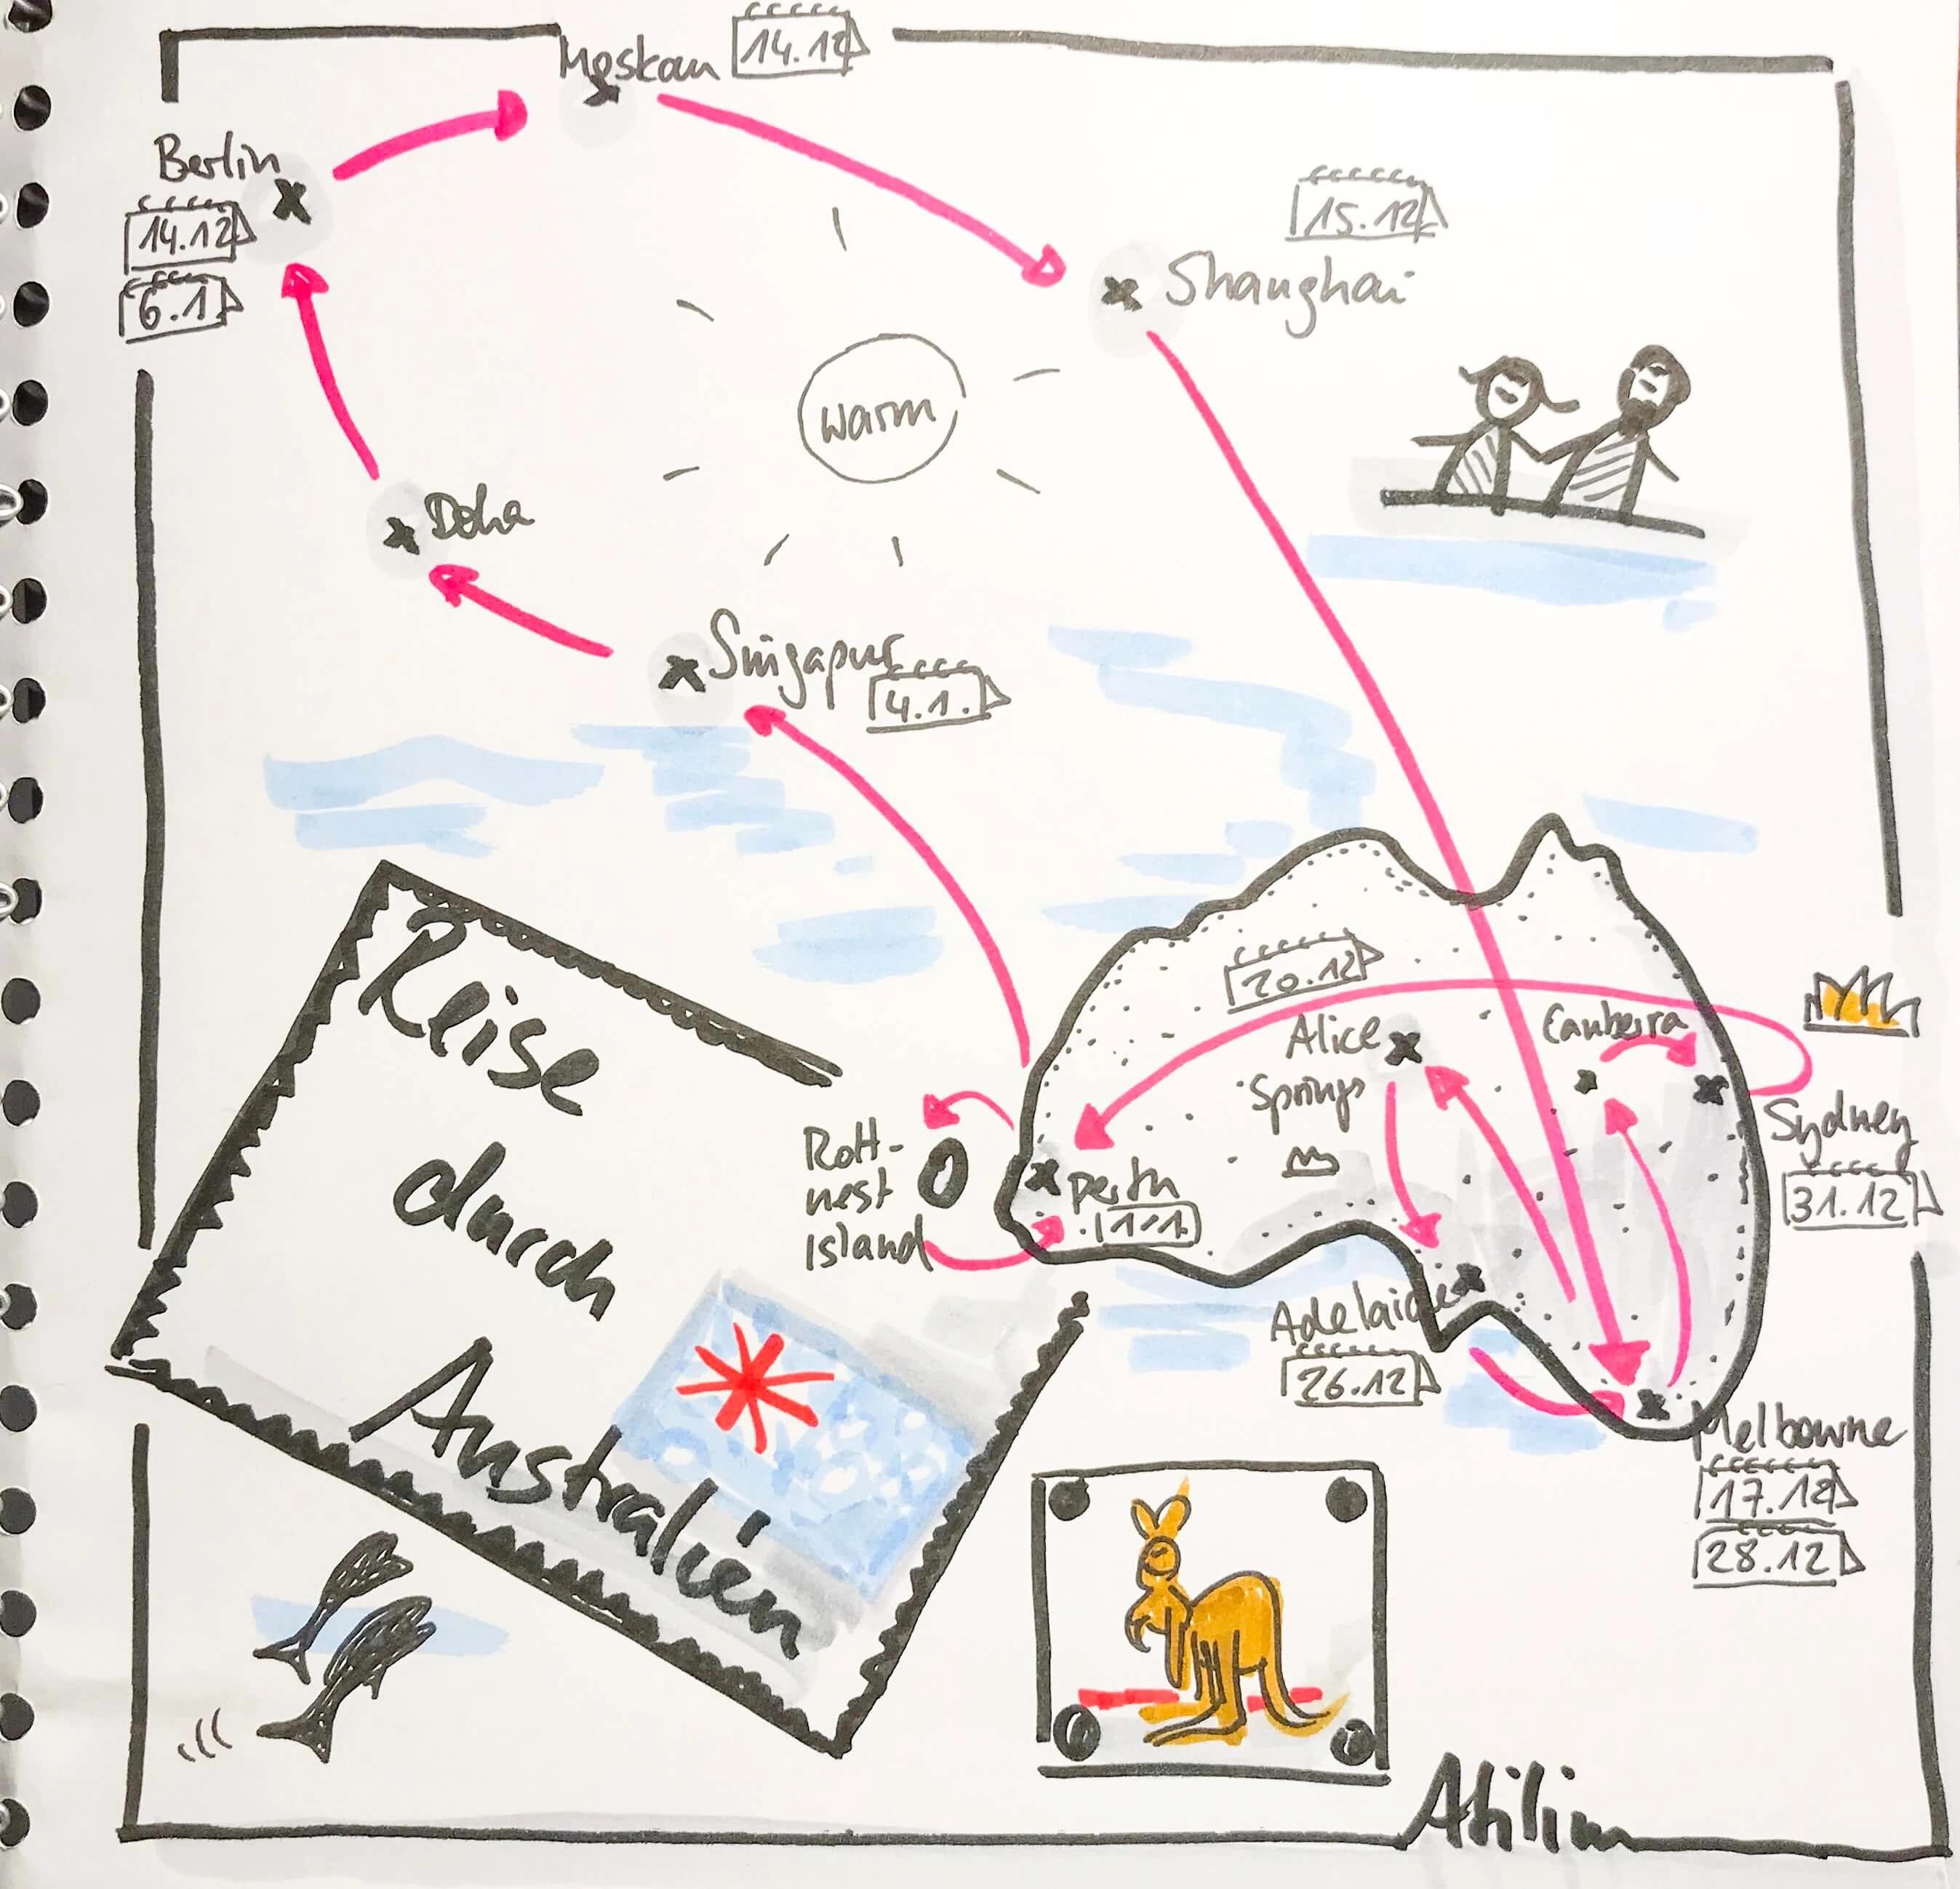 Moskau
14.12
Berlin
14.12
6.1
15.12
Shanghai
warm
Doha
Singapur
4.1.
Reise
durch
Australien
20.12
Alice
Springs
Canberra
Sydney
31.12
Rott-
nest
Island
Perth
1.1.
Adelaide
26.12
Melbourne
17.12
28.12
Atilim